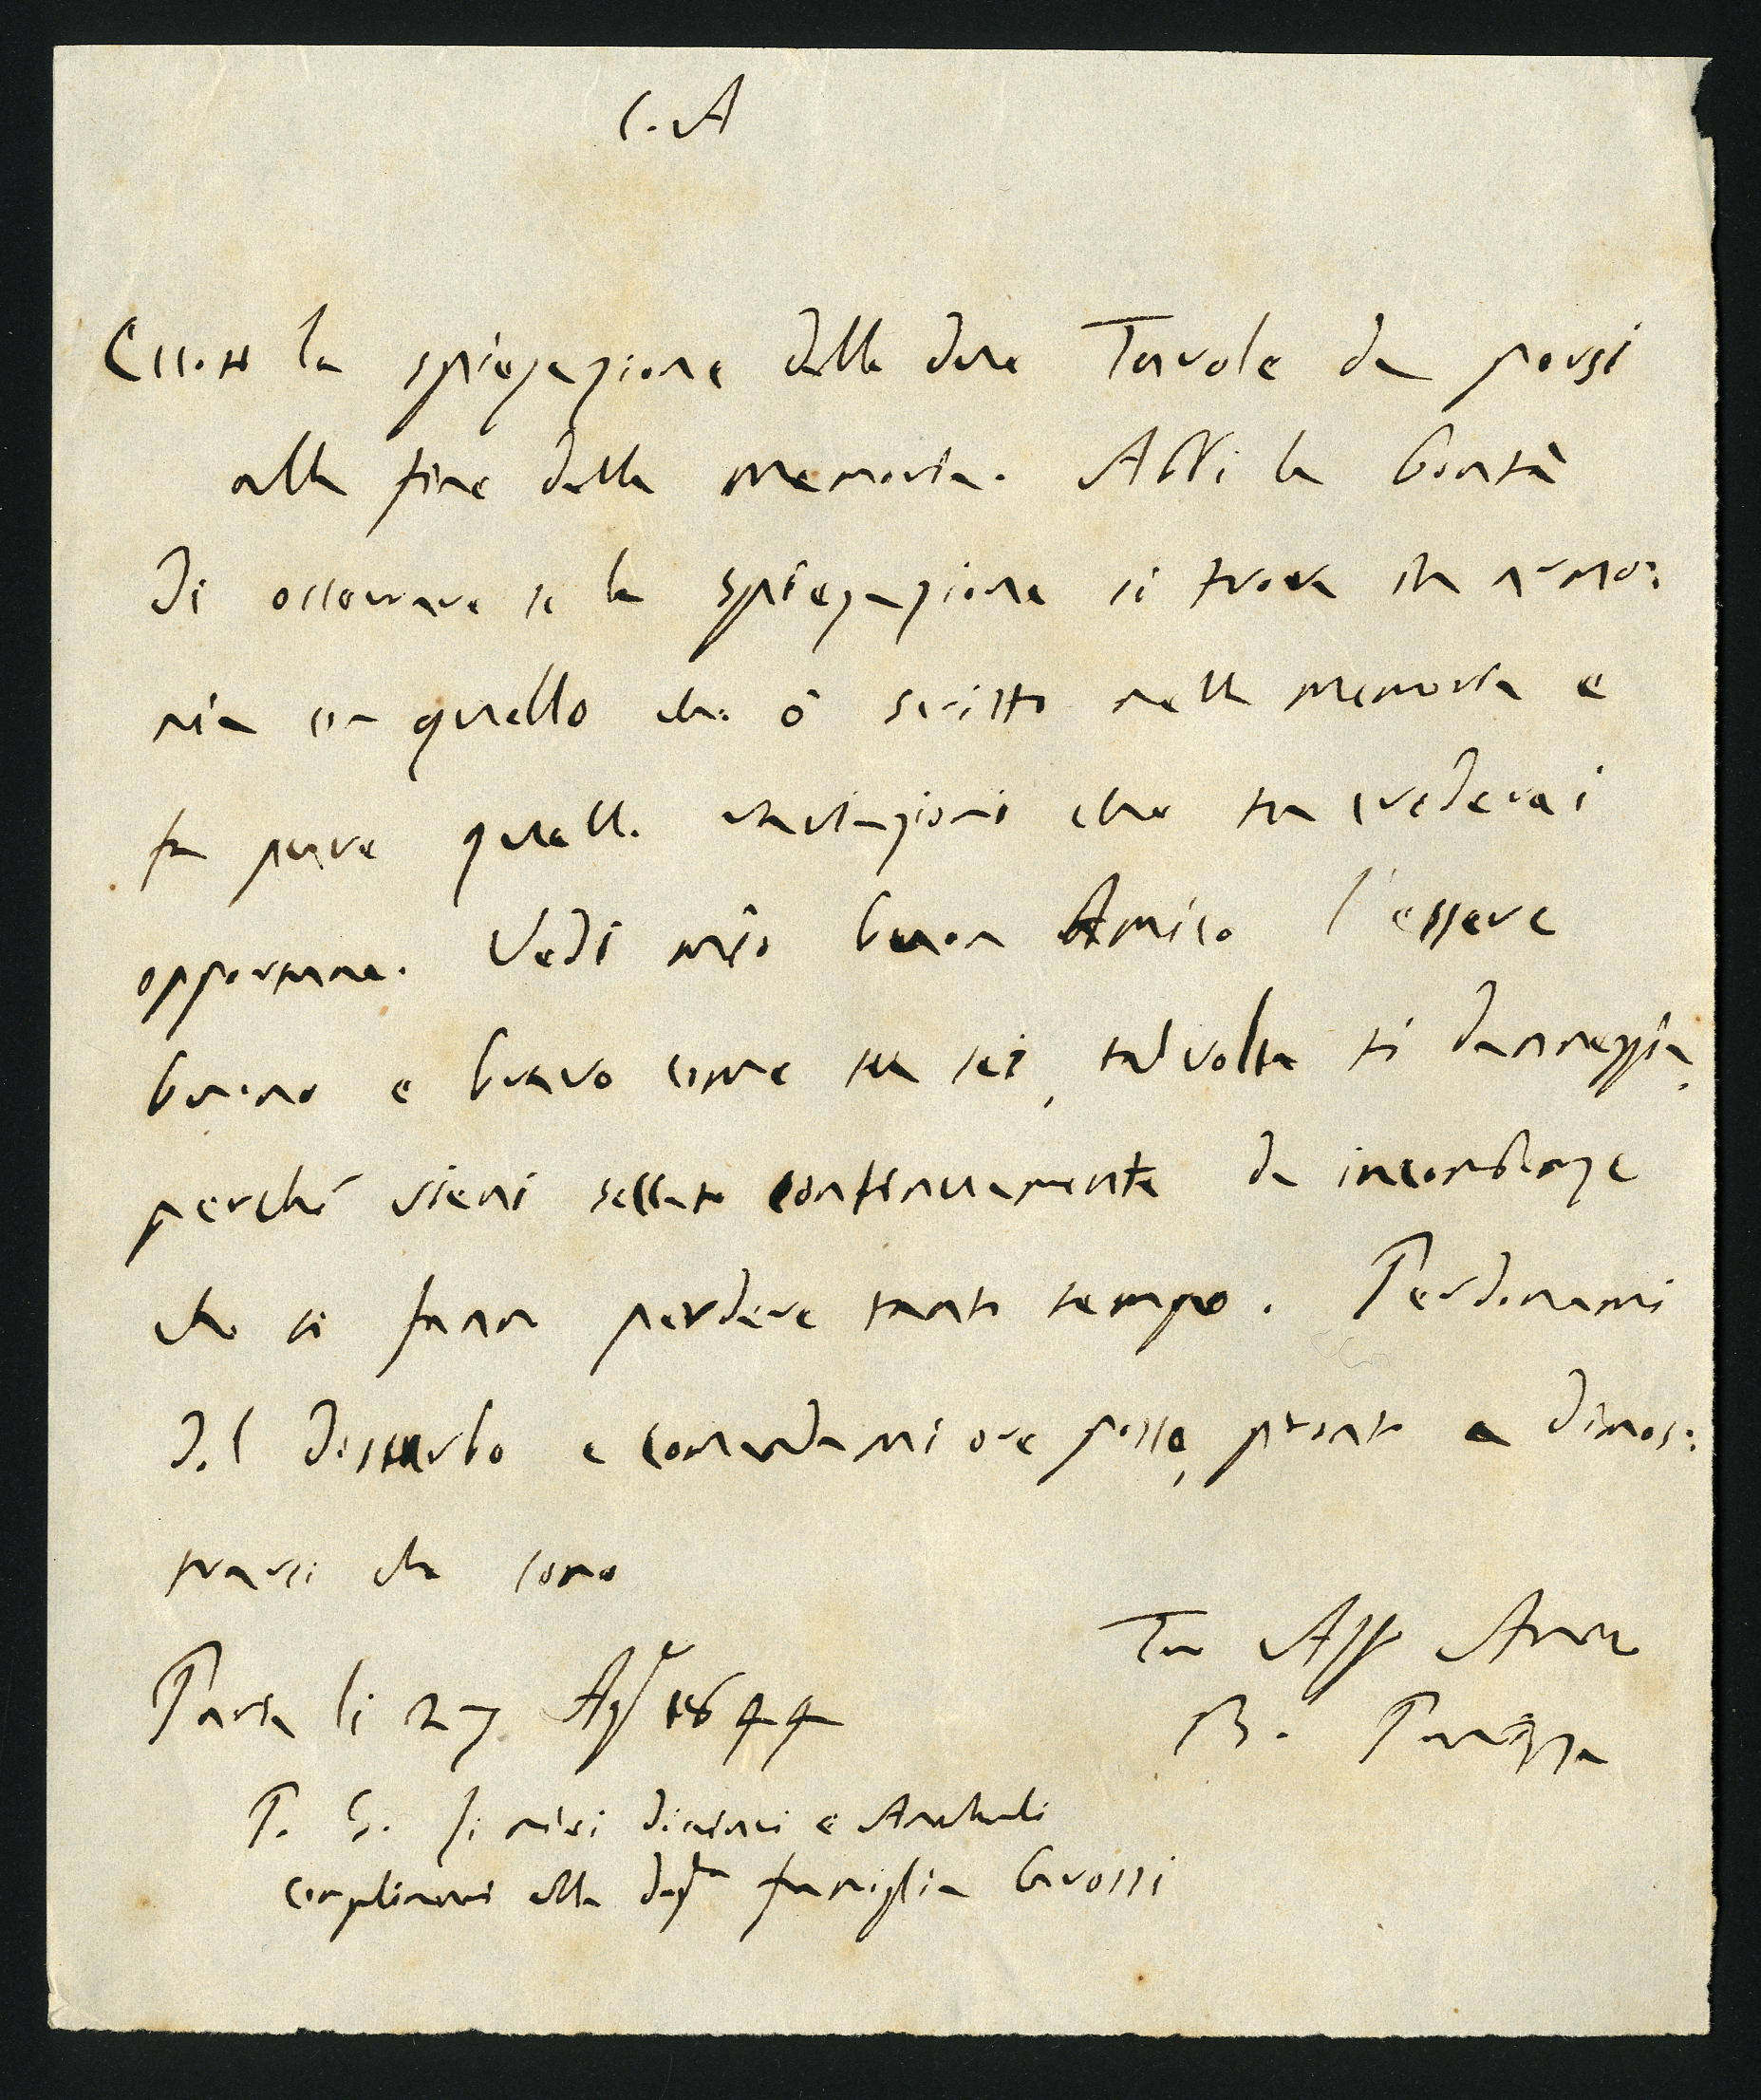 C. A
Eccoti la spiegazione delle due Tavole da porsi
alla fine della memoria. Abbi la bontà
di osservare se la spiegazione si trova in armo:
nia con quello che ò scritto nella memoria e
fa pure quelle variazioni che tu crederai
opportune. Vedi mio buon Amico l'essere
buono e bravo come tu sei, talvolta ti danneggia,
perché vieni seccato continuamente da incombenze
che ti fanno perdere tanto tempo. Perdonami
del disturbo e comandami ove posso, pronto a dimos:
trarti che sono
Tuo Aff Amico
Pavia li 27 Ag 1844
B. Panizza
P. S. I miei
complimenti alla famiglia Grossi